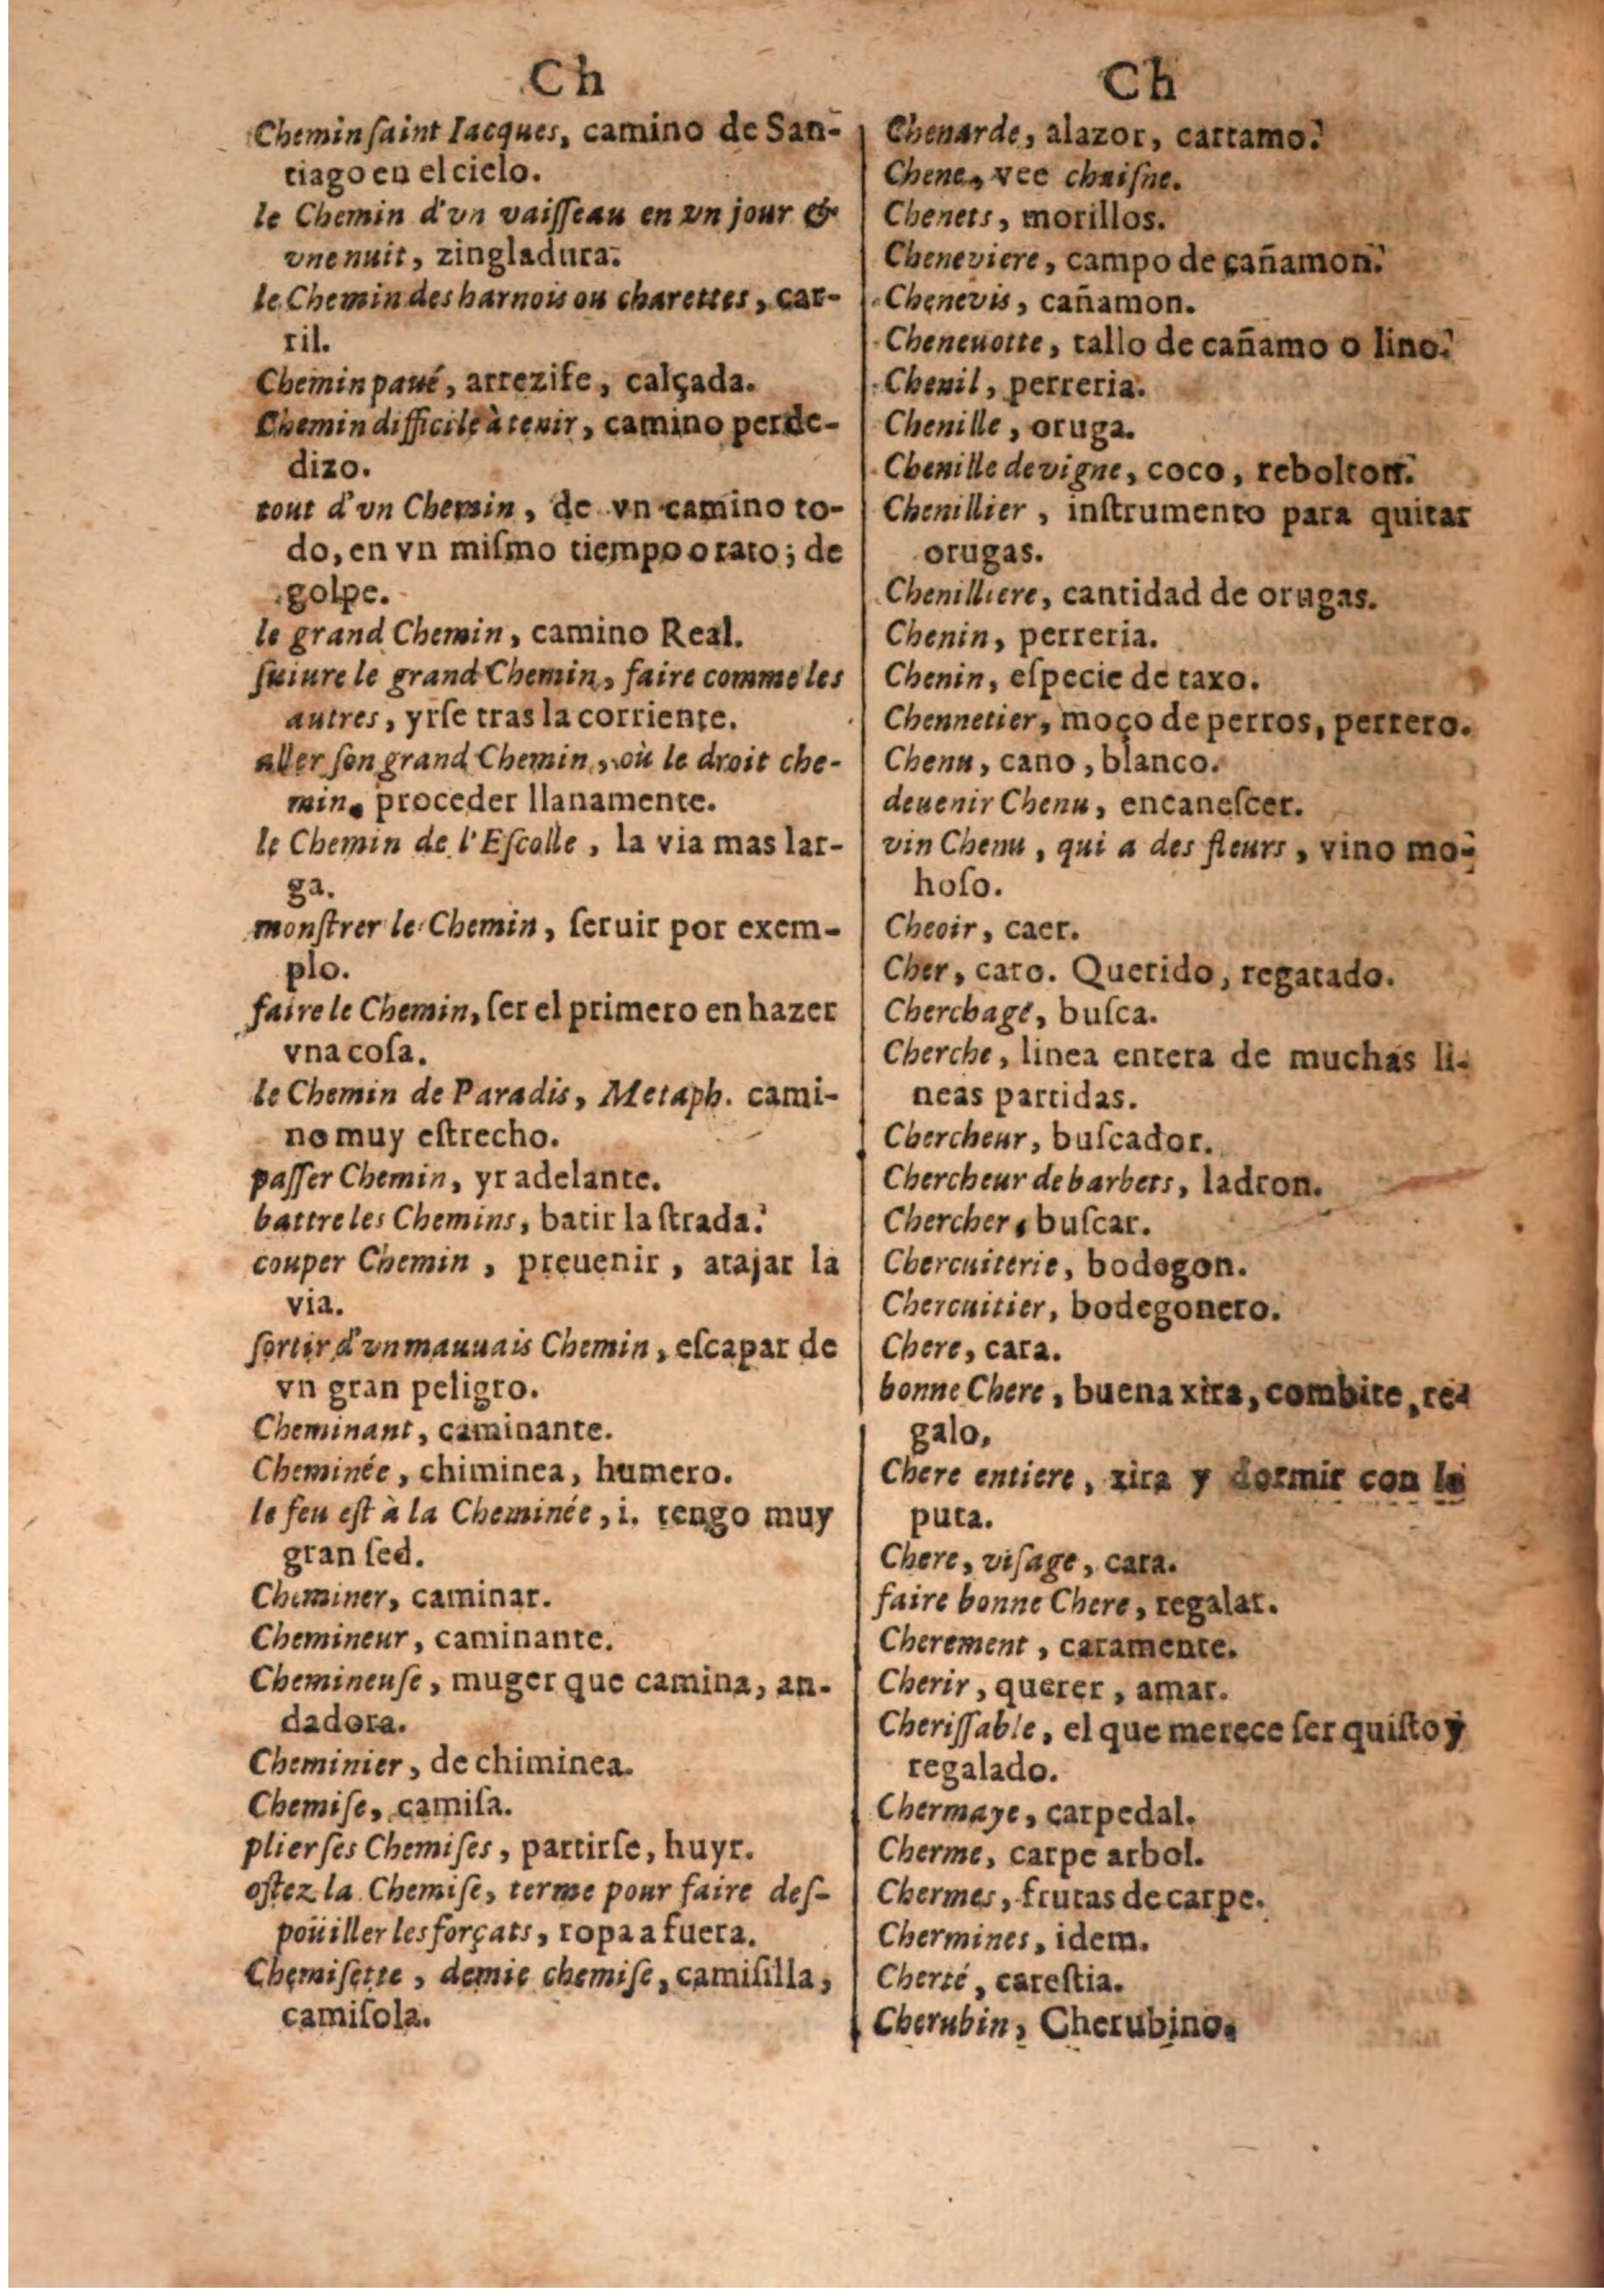 Ch
Chemin ſaint Iacques, camino de San-
tiago en el cielo.
le Chemin d'vn vaiſſeau en vn jour &
vne nuit, zingladura.
le Chemin des harnois ou charettes, car-
ril.
Chemin paué, arrezife, calçada.
Chemin difficile à tenir, camino perde-
dizo.
tout d'vn Chemin, de vn camino to-
do, en vn miſmo tiempo o rato; de
golpe.
le grand Chemin, camino Real.
ſuiure le grand Chemin, faire comme les
autres, yrſe tras la corriente.
aller ſon grand Chemin, où le droit che-
min, proceder llanamente.
le Chemin de l'Eſcolle, la via mas lar-
ga.
monſtrer le Chemin, ſeruir por exem-
plo.
faire le Chemin, ſer el primero en hazer
vna coſa.
le Chemin de Paradis, Metaph. cami-
no muy eſtrecho.
paſſer Chemin, yr adelante.
battre les Chemins, batir la ſtrada.
couper Chemin, preuenir, atajar la
via.
ſortir d'vn mauuais Chemin, eſcapar de
vn gran peligro.
Cheminant, caminante.
Cheminée, chiminea, humero.
le feu eſt à la Cheminée, i. tengo muy
gran ſed.
Cheminer, caminar.
Chemineur, caminante.
Chemineuſe, muger que camina, an-
dadora.
Cheminier, de chiminea.
Chemiſe, camiſa.
plier ſes Chemiſes, partirſe, huyr.
oſtez la Chemiſe, terme pour faire deſ-
poüiller les forçats, ropa a fuera.
Chemiſette, demie chemiſe, camiſilla,
camiſola.
Ch
Chenarde, alazor, cartamo.
Chene, vee chaiſne.
Chenets, morillos.
Cheneviere, campo de cañamon.
Chenevis, cañamon.
Cheneuotte, tallo de cañamo o lino.
Chenil, perreria.
Chenille, oruga.
Chenille de vigne, coco, rebolton.
Chenillier, inſtrumento para quitar
orugas.
Chenilliere, cantidad de orugas.
Chenin, perreria.
Chenin, eſpecie de taxo.
Chennetier, moço de perros, perrero.
Chenu, cano, blanco.
deuenir Chenu, encaneſcer.
vin Chenu, qui a des fleurs, vino mo-
hoſo.
Cheoir, caer.
Cher, caro. Querido, regatado.
Cherchage, buſca.
Cherche, linea entera de muchas li-
neas partidas.
Chercheur, buſcador.
Chercheur de barbets, ladron.
Chercher, buſcar.
Chercuiterie, bodogon.
Chercuitier, bodegonero.
Chere, cara.
bonne Chere, buena xira, combite, re-
galo,
Chere entiere, xira y dormir con la
puta.
Chere, viſage, cara.
faire bonne Chere, regalar.
Cherement, caramente.
Cherir, querer, amar.
Cheriſſable, el que merece ſer quiſto y
regalado.
Chermaye, carpedal.
Cherme, carpe arbol.
Chermes, frutas de carpe.
Chermines, idem.
Cherté, careſtia.
Cherubin, Cherubino.